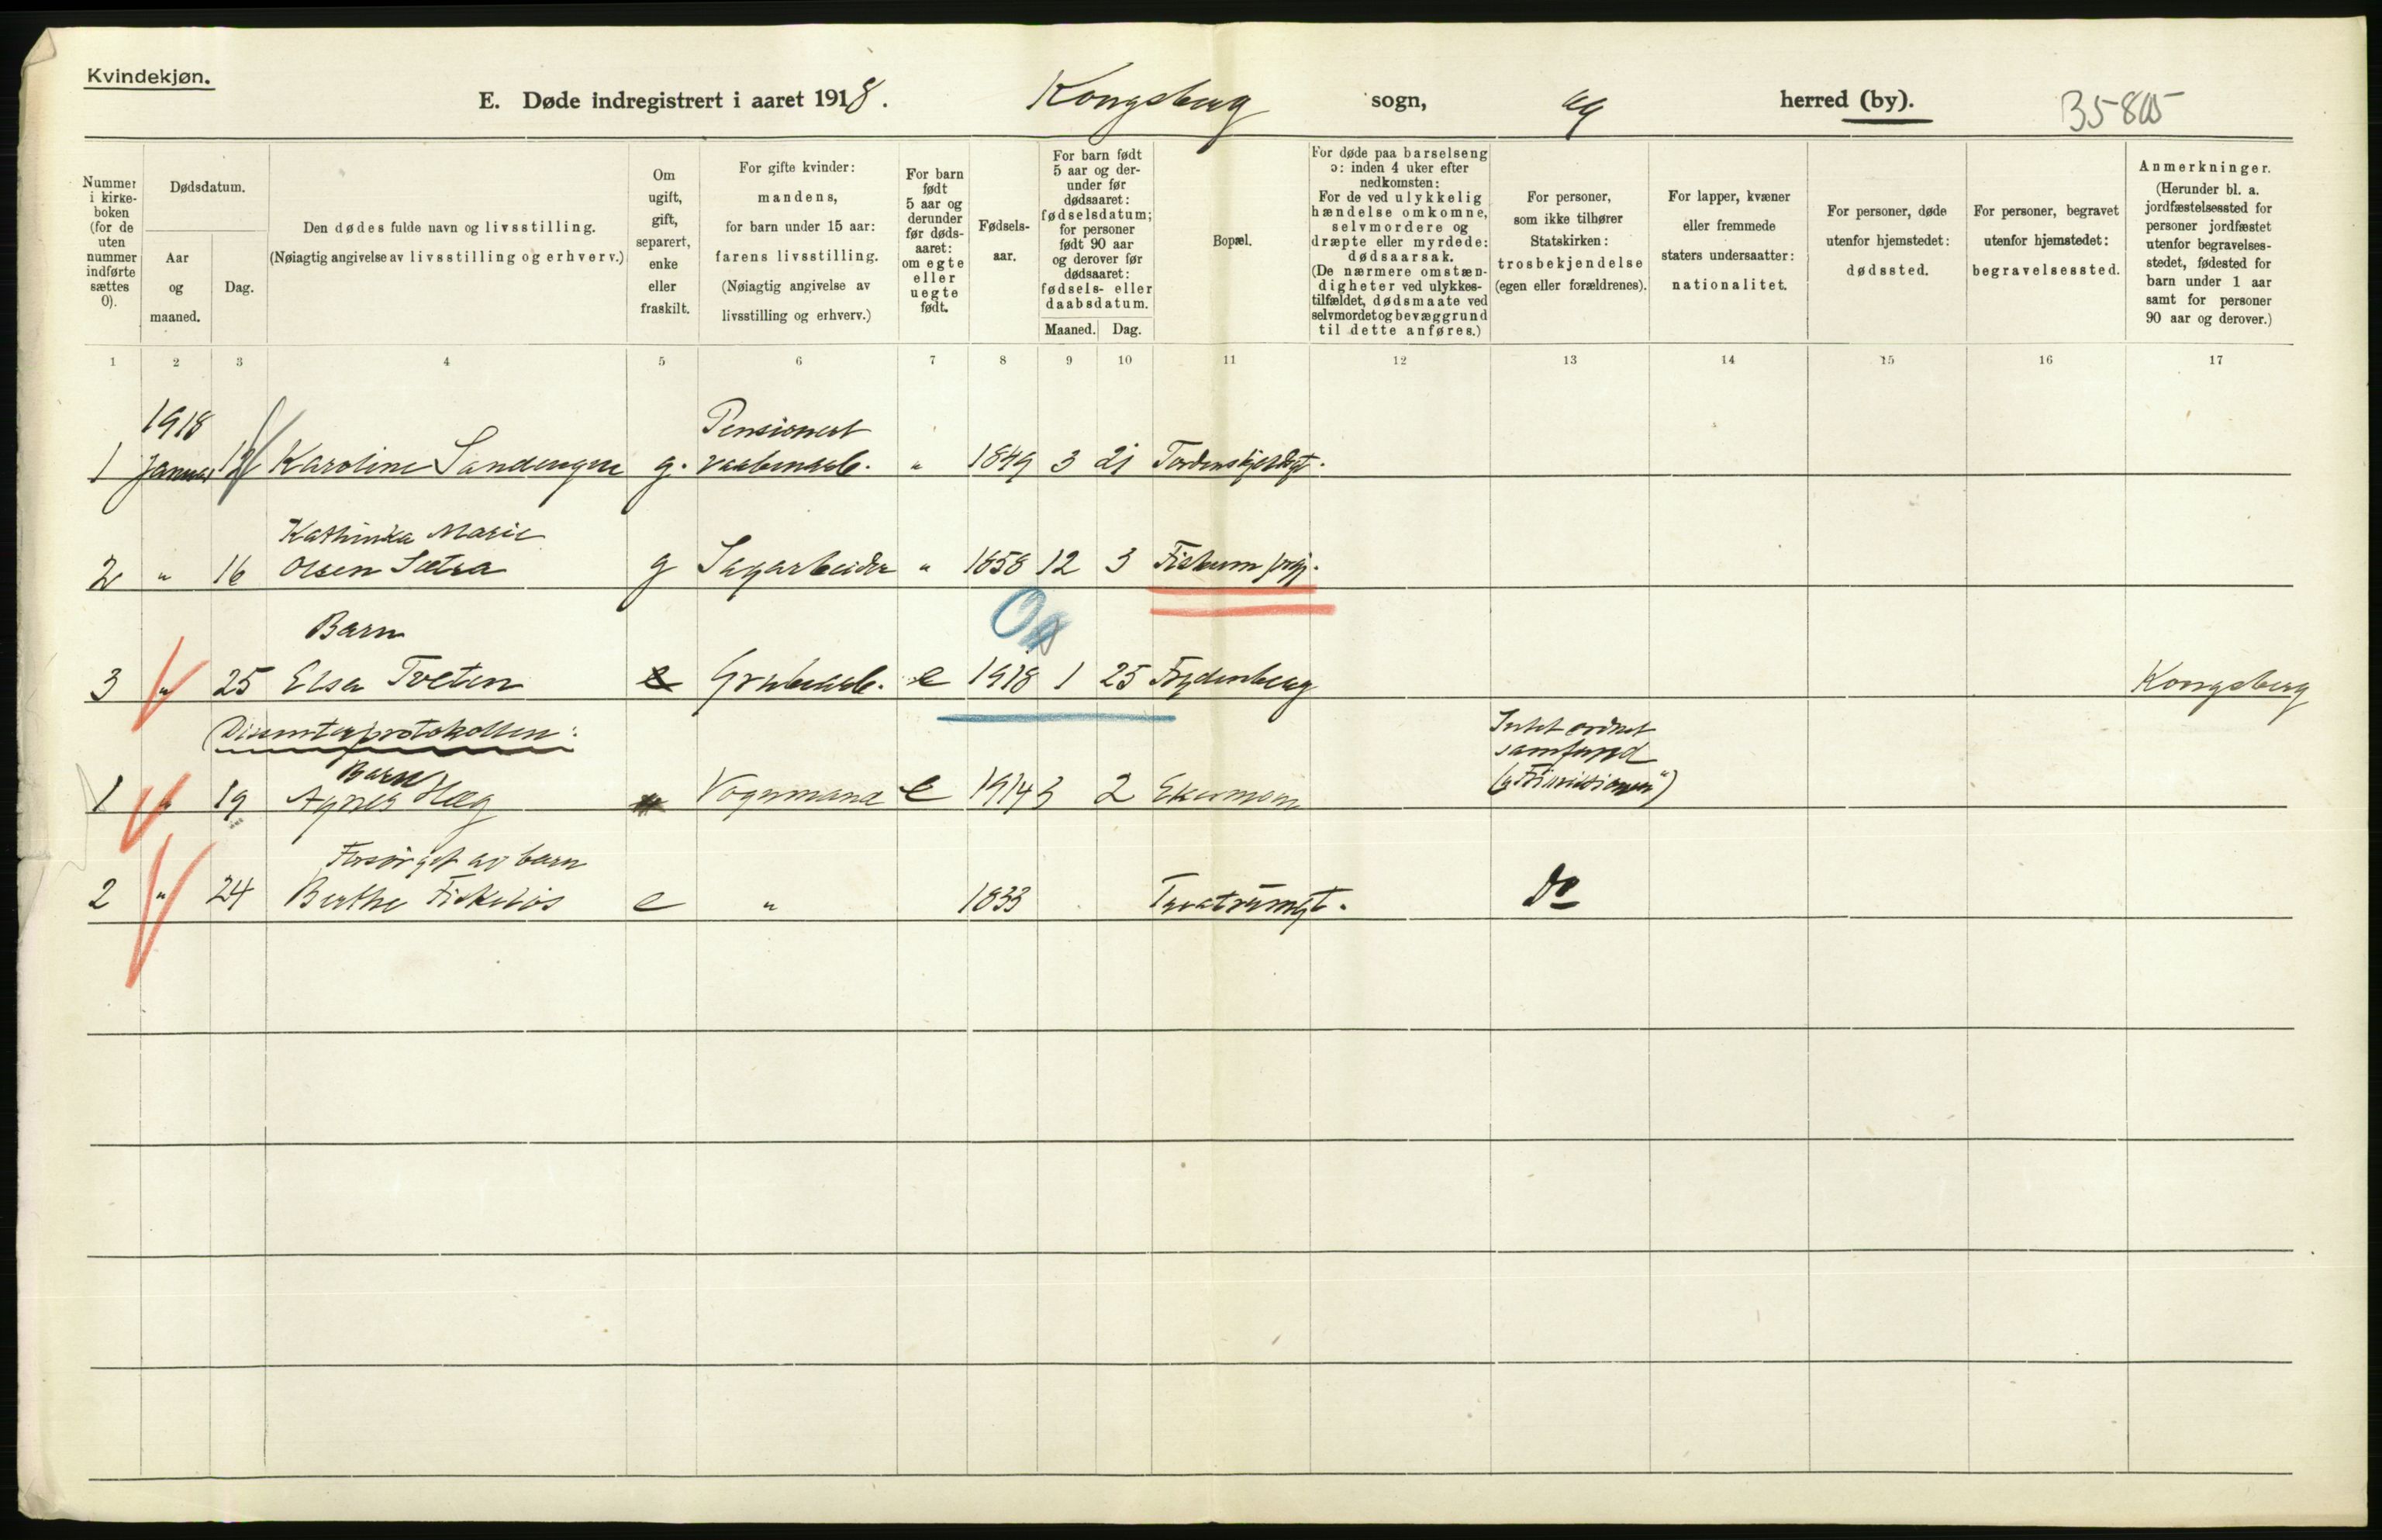 Kvindekjøn.
E. Døde indregistrert i aaret 1918. Kongsberg sogn, og herred (by).
Nummer i kirkeboken (for de uten nummer indførte sættes 0).
Dødsdatum.
Aar og maaned.
Dag.
Den dødes fulde navn og livsstilling.
(Nøiagtig angivelse av livsstilling og erhverv.)
Om ugift, gift, separert, enke eller fraskilt.
For gifte kvinder: mandens, for barn under 15 aar: farens livsstilling.
(Nøiagtig angivelse av livsstilling og erhverv.)
For barn født 5 aar og derunder før dødsaaret: om egte eller uegte født.
Fødselsaar.
For barn født 5 aar og derunder før dødsaaret: fødselsdatum; for personer født 90 aar og derover før dødsaaret: fødsels- eller daabsdatum.
Maaned. Dag.
Bopæl.
For døde paa barselseng ɔ: inden 4 uker efter nedkomsten:
For de ved ulykkelig hændelse omkomne, selvmordere og dræpte eller myrdede: dødsaarsak.
(De nærmere omstændigheter ved ulykkestilfældet, dødsmaate ved selvmordet og bevæggrund til dette anføres.)
For personer, som ikke tilhører Statskirken: trosbekjendelse (egen eller forældrenes).
For lapper, kvæner eller fremmede staters undersaatter: nationalitet.
For personer, døde utenfor hjemstedet: dødssted.
For personer, begravet utenfor hjemstedet: begravelsessted.
Anmerkninger.
(Herunder bl. a. jordfæstelsessted for personer jordfæstet utenfor begravelsesstedet, fødested for barn under 1 aar samt for personer 90 aar og derover.)
1 2 3 4 5 6 7 8 9 10 11 12 13 14 15 16 17
1918 Pensionert
1 Januar 12 Karoline Sandengen g. vaabenarb. " 1849 3 21 Tordenskjoldsgt.
Kathinka Marie
2 " 16 Olsen Sætra g Sagarbeider " 1858 12 3 Fiskum
Barn
3 " 25 Elsa Tveten e Grubearb. e 1918 1 25 Frydenberg Kongsberg
(Dissenterprotokollen: Intet ordnet
Barn samfund
1 " 19 Agnes Hæg Vognmand e 1914 3 2 Ekermoen ("Frimissionen")
Forsørget av barn
2 " 24 Berthe Fiskeløs e " 1833 do